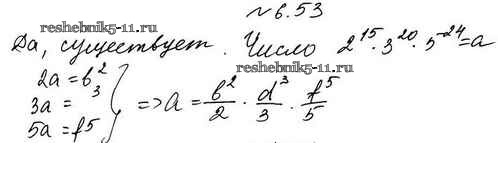 №6.53
reshebnik5-11.ru
Да, существует. Число 2^15 · 3^20 · 5^-24 = a
reshebnik5-11.ru
2a = b^2
3a = ^3
5a = f^5
} => a = b^2/2 · d^3/3 · f^5/5